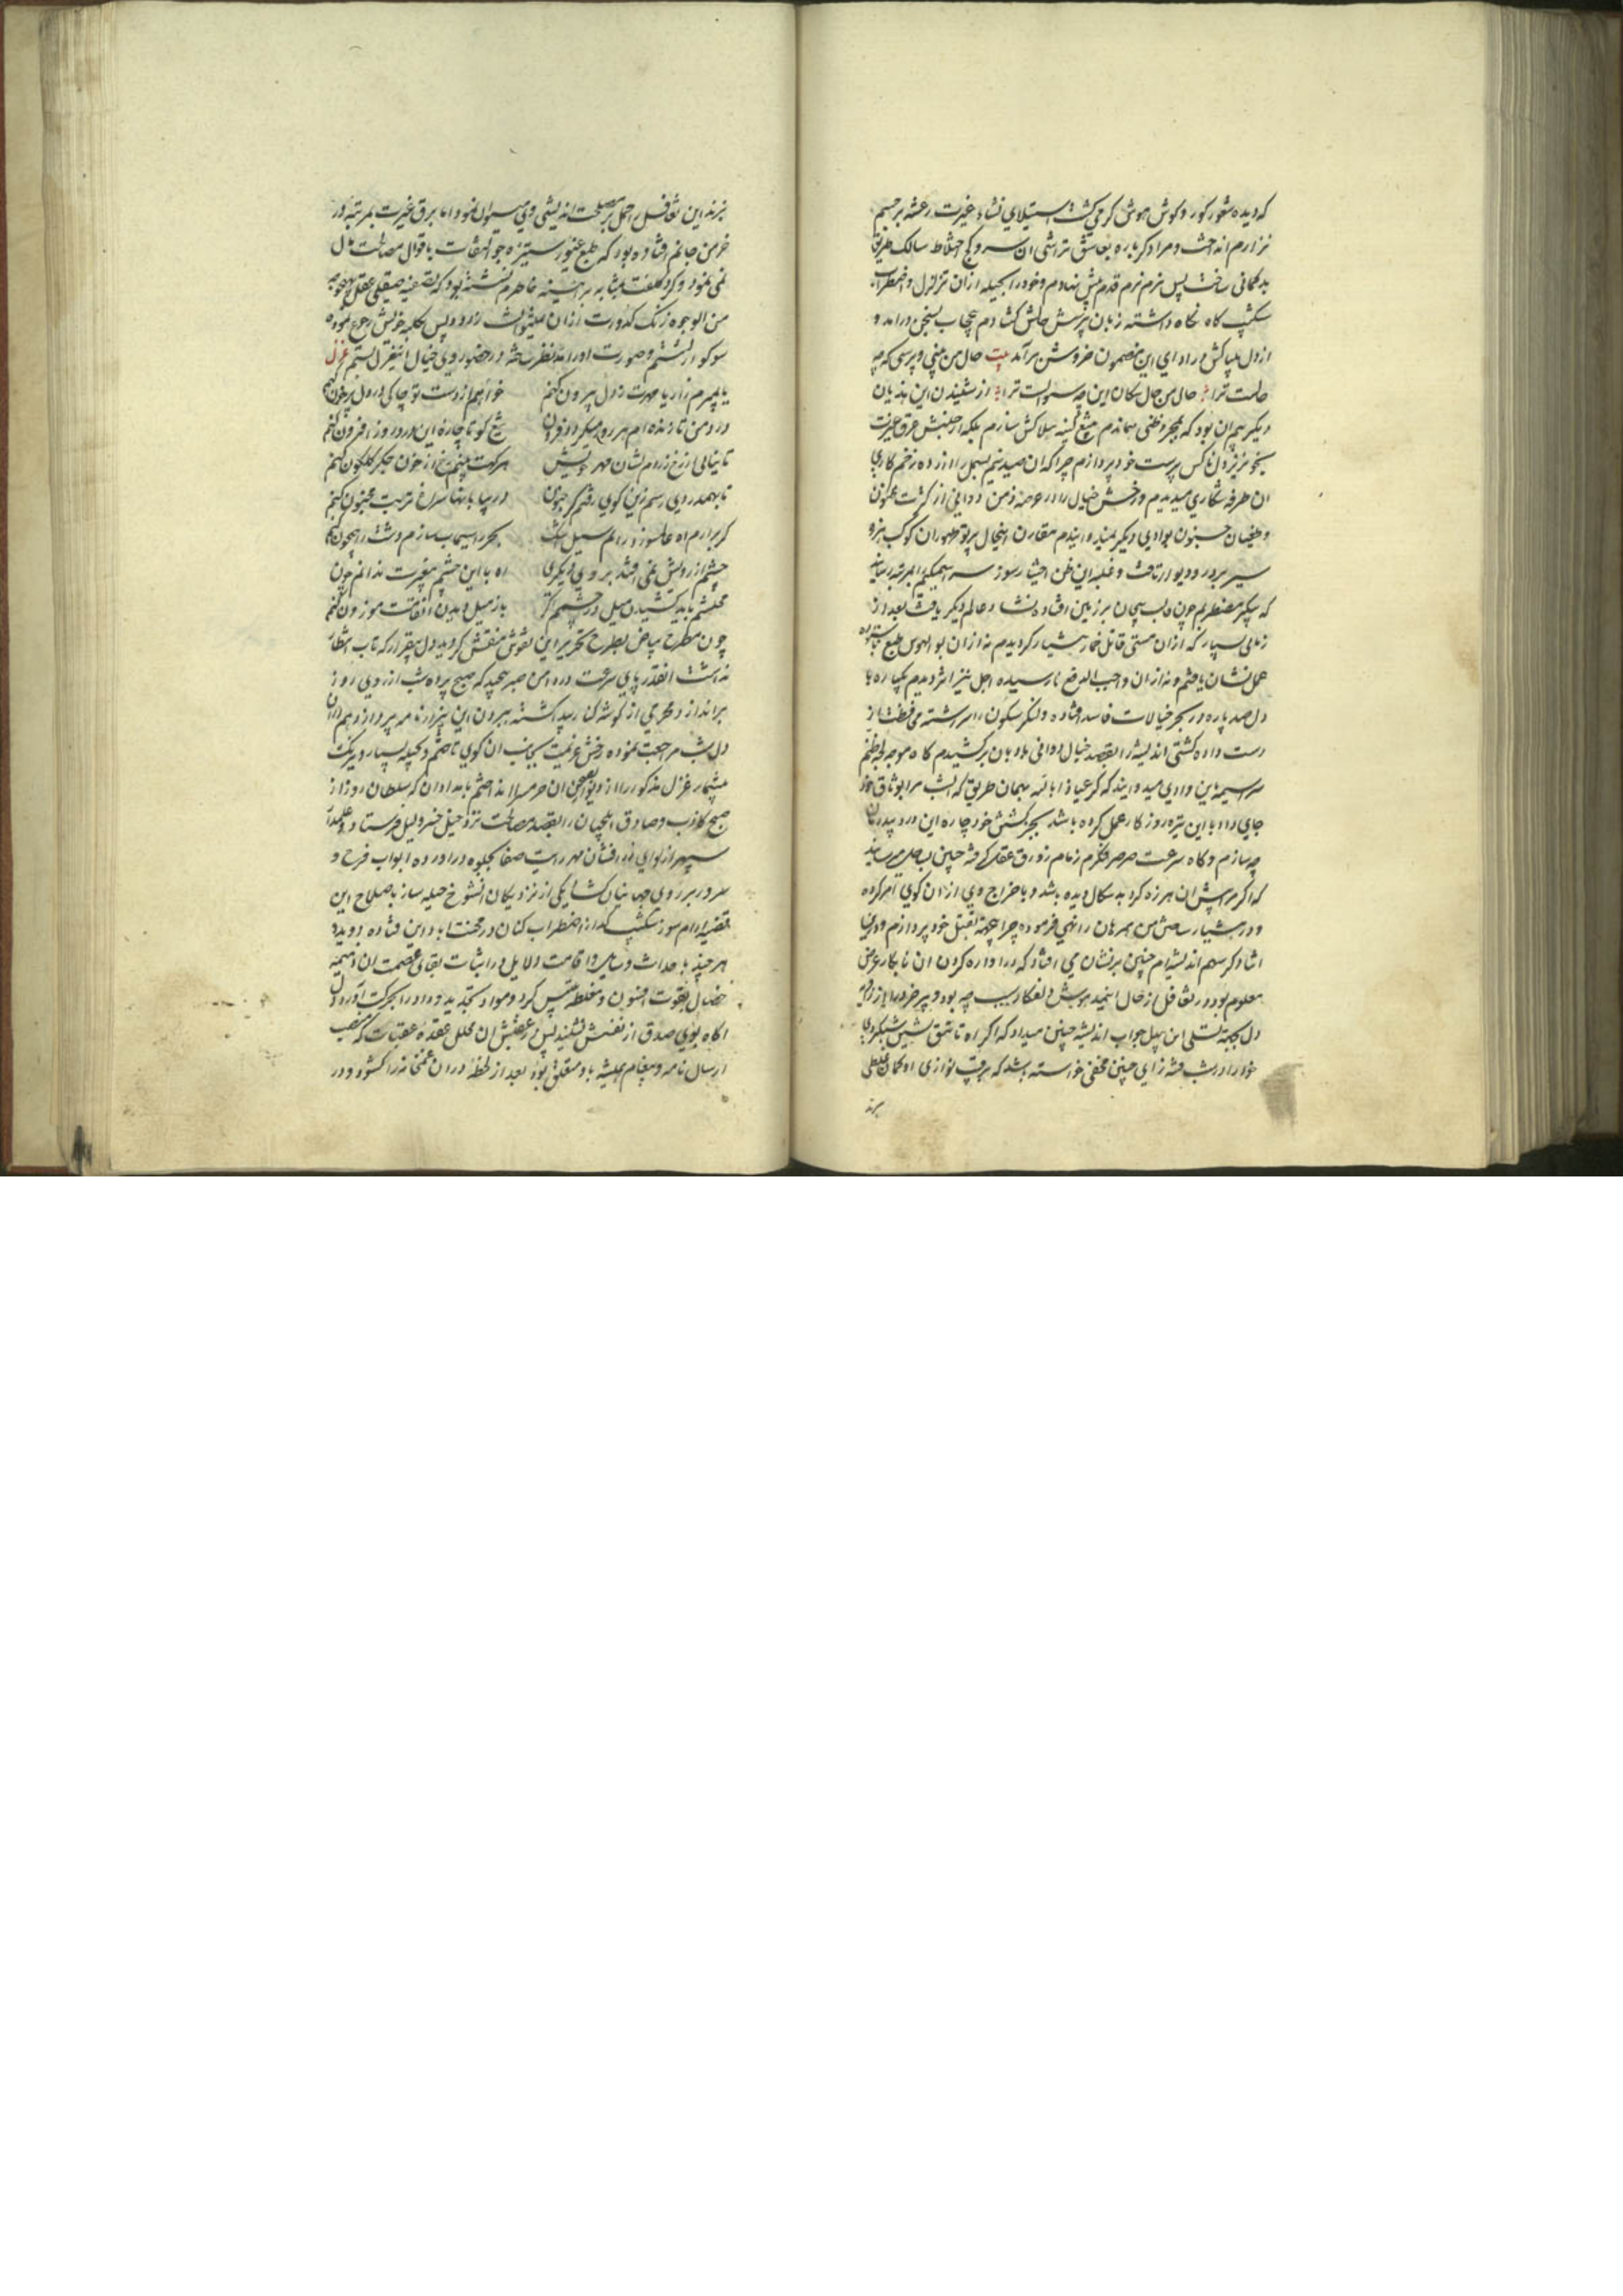 که دیده شعور کور و کوش هوش کر می کشت استیلای نشاء غیرت رعشه بر جسم
نزارم انداخت و مرا دکر باره بعاشق تراشی ان سرو کج اختلاط سالک طریق
بد کمانی ساخت پس نرم نرم قدم پیش نهادم و خود را بحیله ازان تزلزل و اضطراب
شکیب کاه نکاه داشته زبان بپرسش حالش کشادم بسخن درامد و
از دل در ادای این مضمون خروش برآمد بیت حال من بینی و پرسی که چه
حالت ترا حال من حال سکان این چه سوالست ترا از شنیدن این هذیان
دیکر بیم ان بود که بمجرد ظنی تیغ کینه هلاکش سازم بلکه از جنبش عرق غیرت
بخونریز دل ناکس پرست خود پردازم چرا که ان صید نیم بسمل را از ده زخم کاری
ان طرفه شکاری میدیدم و رخش خیال را در عرصه ذهن دوانی از کثرت
و طغیان جنون بوادی دیکر مقارن اینحال پرتو ظهور ان کوکب
سیر بر در و دیوار تافت و غلبه این ظن سر اسیمکیم بمرتبه رسانید
که پیکر مضطربم چون بیجان بر زمین افتاده نشاء عالم دیکر یافت بعد از
زمانی بسیار که ازان مستی قاتل خمار هشیار کردیدم نه ازان بو الهوس طبع
نشان یافتم و نه ازان واجب الدفع نارسیده اجل نیز اثر دیدم یکپاره با
دل صد پاره در بحر خیالات فاسد افتاده و لنکر سکون را سر رشته محافظت از
دست داده کشتی اندیشه را بقصد خیال بادبان برکشیدم کاه موجه
سراسیمه این وادی که کر عیاذا بالله بهمان طریق که امشب مرا بوثاق خود
جای داد با این تیره روز کار عمل کرده باشد بجز کشتن خود چاره این درد
چه سازم و کاه سرعت صرصر فکرم زمام زورق عقل چنین بساحل میرسانید
که اکر ان هرزه کرد بد سکال دیده باشد و باخراج وی ازان کوی امر کرده
و در همراهان را نهی فرموده چرا بقتل خود پردازم و درین
اثنا دکر سهم اندیشه ام چنین بر نشان می افتاد که در اواره کردن ان نابکار غرض
معلوم بود در تغافل از حال اینمدهوش دلفکار سبب چه بود و پیر خرد
دل بجهة تسلی این پهل جواب اندیشه چنین میداد که اکر اه تا
خود را در شب فتنه زای چنین مخفی خواسته باشد که برقیب نوازی او کمان غلطی
برند
برند این تغافل را حمل بر مصلحت اندیشی وی میتوان نمود اما برق غیرت بمرتبه در
خرمن جانم افتاده بود که طبع غیور ستیزه جو التفات باقوال مصالحت دل
نمی نمود و کرد کلفت بمثابه بر ائینه خاطرم نشسته بود که تصفیه صیقلی عقل بوجه
من الوجوه زنک کدورت ازان نمیتوانست زدود پس بکلبه خویش رجوع نموده
سوکوار نشستم و صورت او را مد نظر ساخته در حضور روی خیال این غزل بستم غزل
یا بمیرم زار یا مهرت ز دل بیرون کنم
خواهم از دست تو چاکی در دل پرخون کنم
درد من تا زنده ام هر روز میکردد فزون
تیغ کو تا چاره این درد روز افزون کنم
تا نیابی از رخ زردم نشان مهر خویش
هر کهت بینم رخ از خون جکر کلکون کنم
تا بهمدردی رسم زین کوی رفتم کر جنون
در بیابانها سراغ تربت مجنون کنم
کر برارم اه عالمسوز ور رانم سیل اشک
بحر را سیماب سازم دشت را جیحون کنم
چشم از رویش نمی افتد بروی دیکری
اه با این چشم بیغیرت ندانم چون کنم
محتشم باید کشیدن میل در چشمم اکر
باز میل دیدن ان قامت موزون کنم
چون مطرح بیاض بطرح تحریر این نقوش منقش کردید دل بیقرار که تاب انتظار
نداشت انقدر پای سرعت در دامن صبر پیچید که صبح پرده شب از روی روز
براندازد و محرمی از کوشه کنار پیدا کشته بیرون این نامه پردازد هم دران
دل شب مراجعت نموده رخش عزیمت بجانب ان کوی تاختم و بحیله بسیار و نیرنک
بیشمار غزل مذکور را از دیوار بصحن ان حرمسرا انداختم بامدادان که سلطان روز از
صبح کاذب و صادق ایلچیان را بقصد مصالحت نزد خیل خسرو لیل فرستاد و علمدار
سپهر از لوای نور افشان مهر رایت صفا بجلوه در اورده ابواب فرح و
سرور بر روی جهانیان کشاد یکی از نزدیکان انشوخ حیله ساز باصلاح این
قضیه ارام سوز شکیب کداز اضطراب کنان در محنت اباد این فتاده دوید و
هر چند باحداث وسایل و اقامت دلایل در اثبات بقای عصمت ان
خصال بقوت افسون و مغلطه کرد و مواد تجدید وداد را بحرکت آورد دل
اکاه بوی صدق از نفسش نشنید پس در عقبش ان محلل عقده عقبات که منصب
ارسال نامه و پیغام همیشه باو متعلق بود بعد از لحظه در ان غمخانه را کشود و در